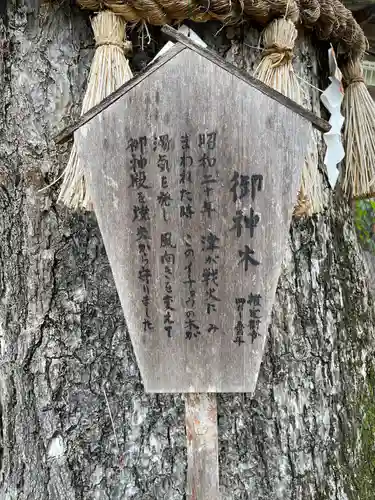 御神木
推定樹令
年
昭和二十年 津が戦火にみ
まわれた時 このイチョウの木が
湯気を出し 風向きを変えて
御神殿を焼失から守りました